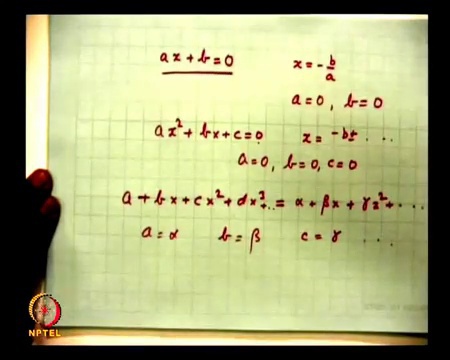 ax + b = 0 x = - b/a
a = 0, b = 0
ax² + bx + c = 0 x = -b± . . .
a = 0, b = 0, c = 0
a + bx + cx² + dx³ + .. = α + βx + γx² + . . .
a = α b = β c = γ . . .
NPTEL